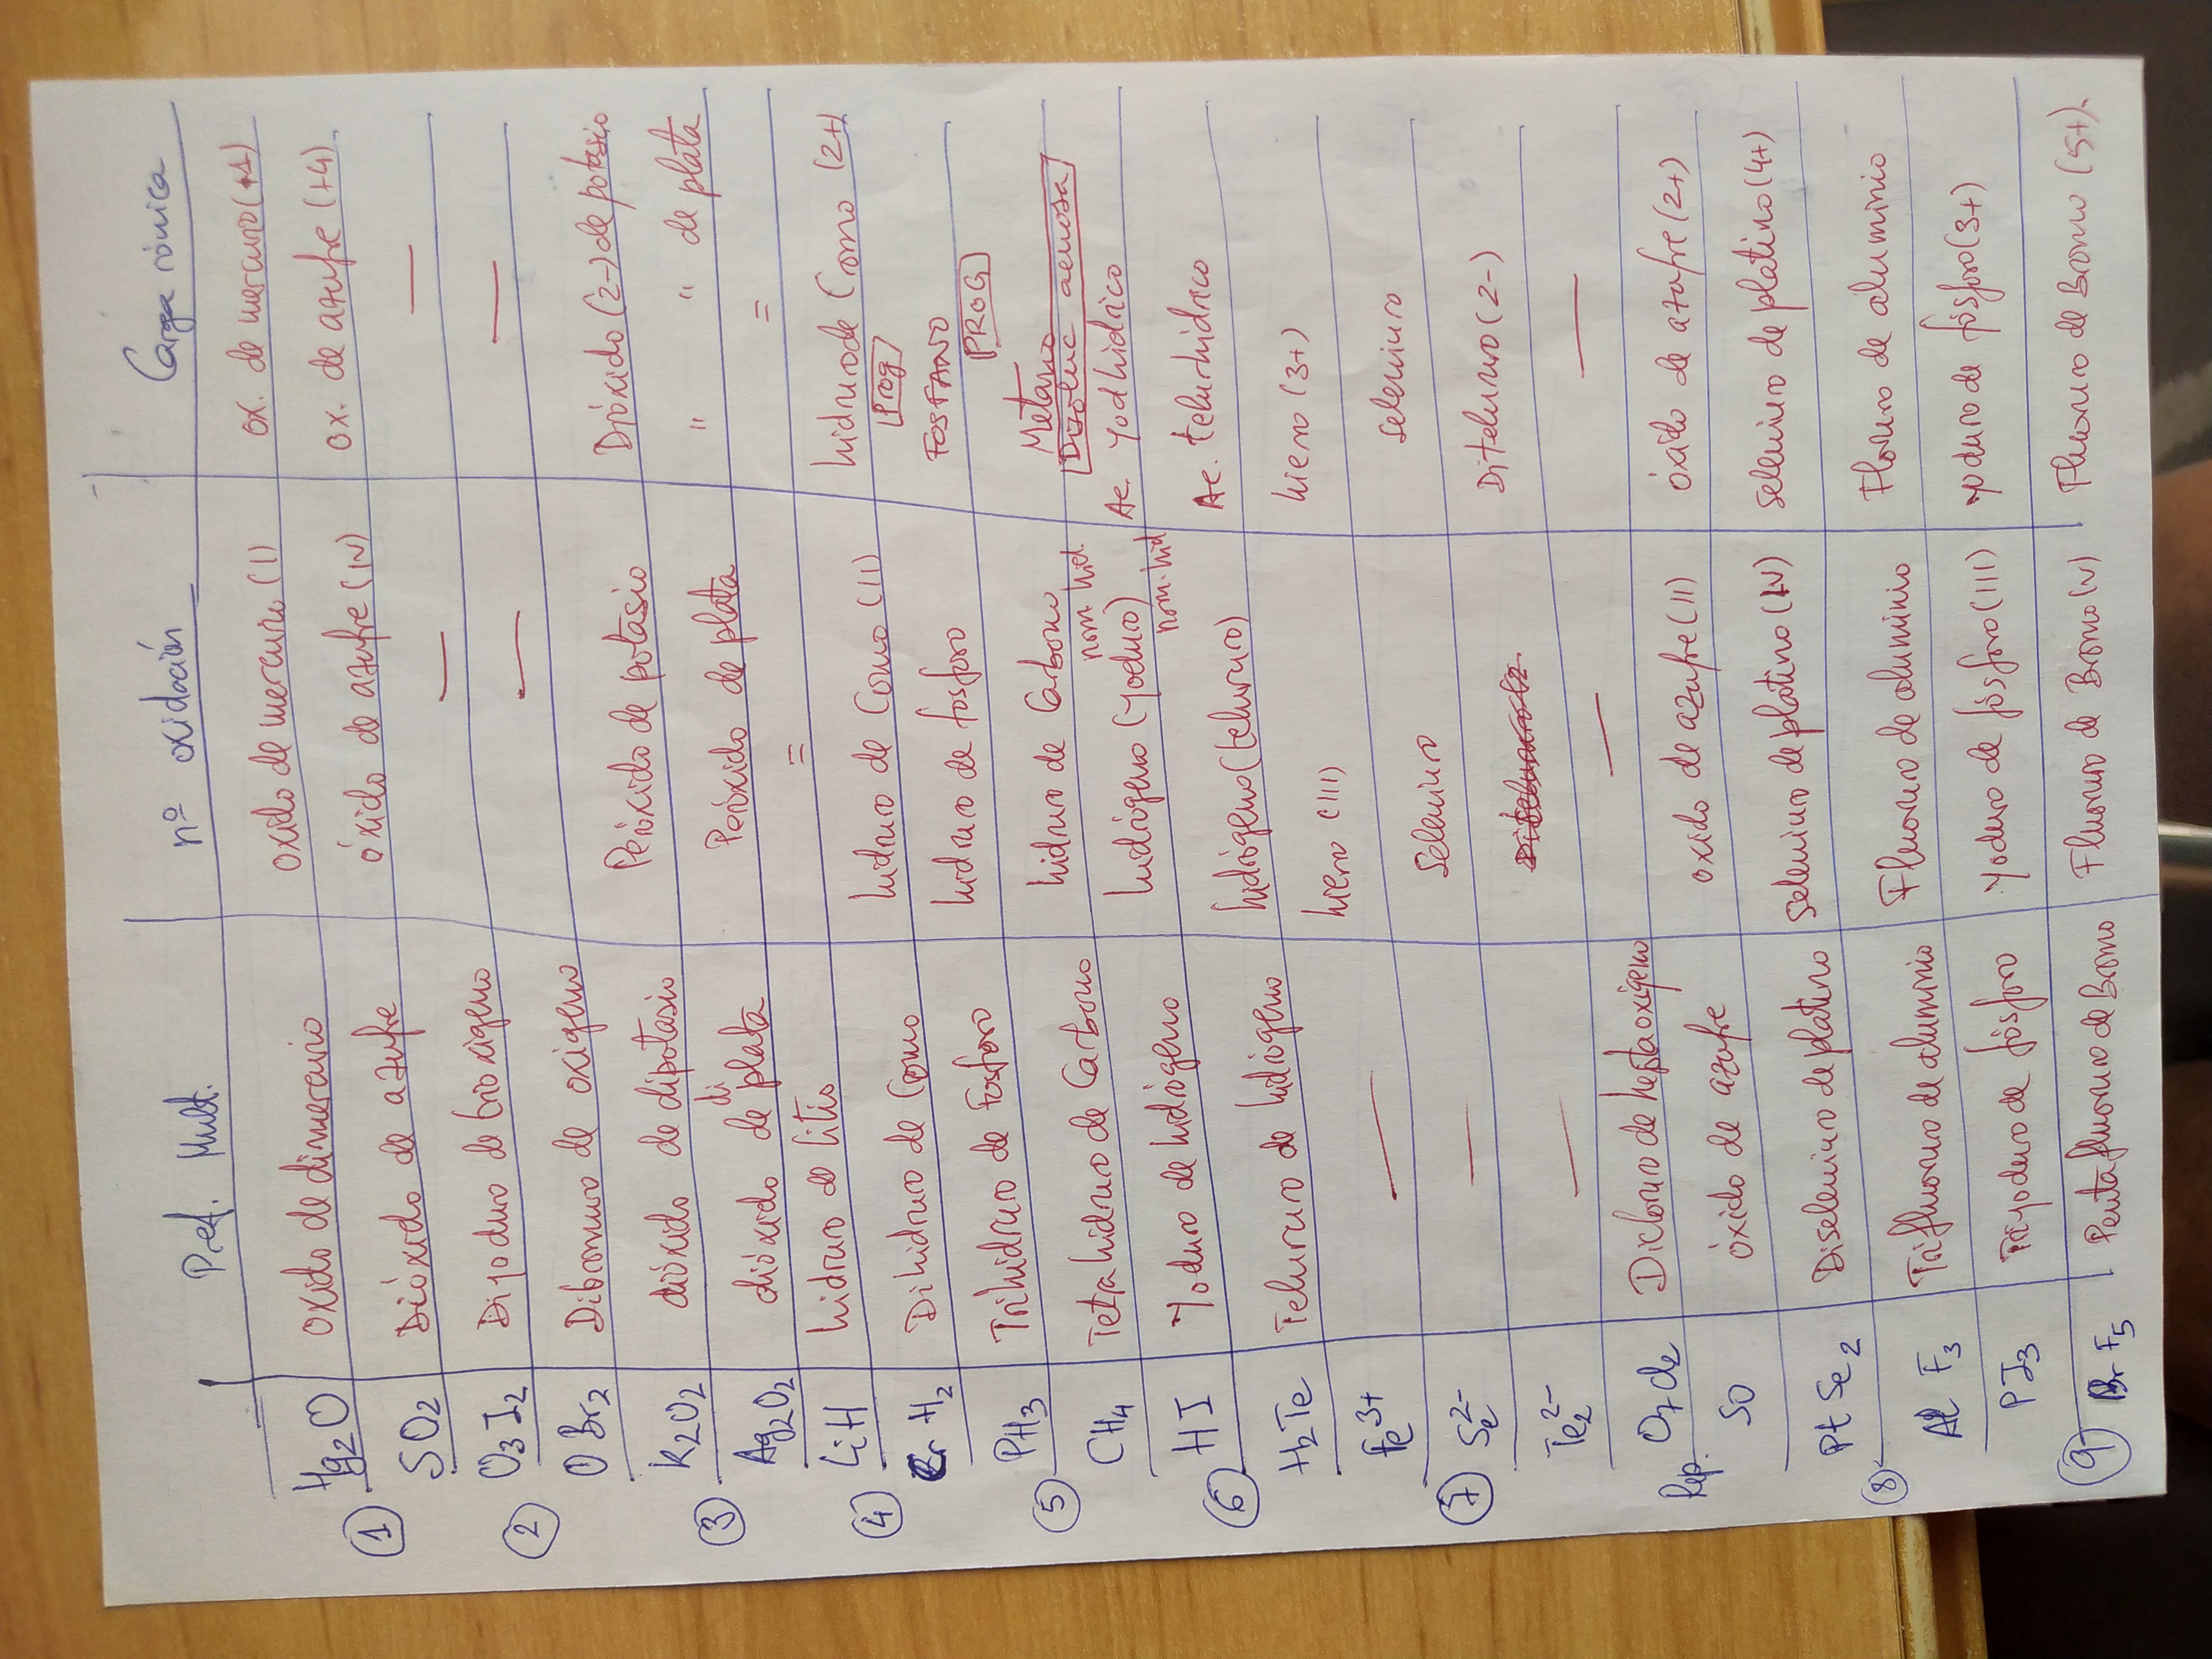 Pref. Mult. nº oxidación Carga iónica
① Hg2O Oxido de dimercurio oxido de mercurio (I) ox. de mercurio (+1)
SO2 Dióxido de azufre óxido de azufre (IV) ox. de azufre (+4)
② O3I2 Diyoduro de trioxigeno — —
OBr2 Dibromuro de oxigeno — —
③ K2O2 dióxido de dipotasio Peróxido de potasio Dióxido (2-) de potasio
Ag2O2 dióxido de di plata Peróxido de plata " " de plata
④ LiH hidruro de litio = =
CrH2 Dihidruro de Cromo hidruro de Cromo (II) hidruro de Cromo (2+)
⑤ PH3 Trihidruro de Fosforo hidruro de fosforo Prog FOSFANO
CH4 Tetrahidruro de Carbono hidruro de Carbono PROG Metano
Disoluc acuosa
⑥ HI Yoduro de hidrógeno hidrógeno (yoduro) nom. hid. Ac. yodhídrico
H2Te Telururo de hidrógeno hidrógeno (telururo) nom. hid Ac. telurhídrico
Fe3+ — hierro (III) hierro (3+)
⑦ Se2- — Seleniuro Seleniuro
Te2 2- — Ditelururo (2-)
Rep. O7Cl2 Dicloruro de heptaoxígeno — —
SO óxido de azufre oxido de azufre (II) óxido de azufre (2+)
⑧ PtSe2 Diseleniuro de platino Seleniuro de platino (IV) Seleniuro de platino (4+)
AlF3 Trifluoruro de aluminio Fluoruro de aluminio Floruro de aluminio
PI3 Triyoduro de fósforo Yoduro de fósforo (III) yoduro de fósforo (3+)
⑨ BrF5 Pentafluoruro de Bromo Fluoruro de Bromo (V) Fluoruro de Bromo (5+).